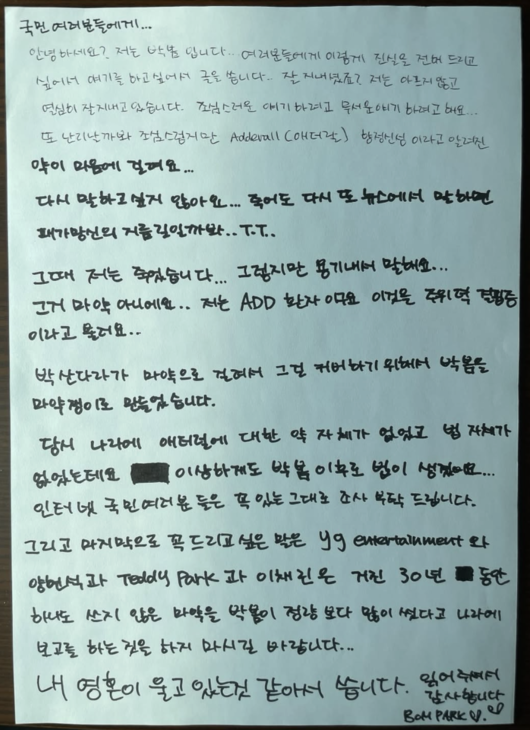 국민 여러분들에게...
안녕하세요? 저는 박봄 입니다.. 여러분들에게 이렇게 진실을 전해 드리고
싶어서 얘기를 하고싶어서 글을 씁니다.. 잘 지내셨죠? 저는 아프지 않고
열심히 잘지내고 있습니다. 조심스러운 얘기 하려고 무서운얘기 하려고 해요...
또 난리날까봐 조심스럽지만 Adderall (애더럴) 향정신성 이라고 알려진
약이 마음에 걸려요...
다시 말하고싶지 않아요... 죽어도 다시 또 뉴스에서 말하면
패가망신의 지름길일까봐..T.T..
그때 저는 죽었습니다... 그렇지만 용기내서 말해요...
그거 마약 아니에요.. 저는 ADD 환자 이고요 이것을 주위력 결핍증
이라고 불러요..
박산다라가 마약으로 걸려서 그걸 커버하기 위해서 박봄을
마약쟁이로 만들었습니다.
당시 나라에 애터럴에 대한 약 자체가 없었고 법 자체가
없었는데요 이상하게도 박봄 이후로 법이 생겼어요...
인터넷 국민여러분 들은 꼭 있는그대로 조사 부탁 드립니다.
그리고 마지막으로 꼭 드리고싶은 말은 yg entertainment 와
양현석과 Teddy Park 과 이채린 은 거진 30년 동안
하나도 쓰지 않은 마약을 박봄이 정량 보다 많이 썼다고 나라에
보고를 하는것을 하지 마시길 바랍니다...
내 영혼이 울고 있는것 같아서 씁니다. 읽어주셔서
감사합니다
BOM PARK ♡.♡